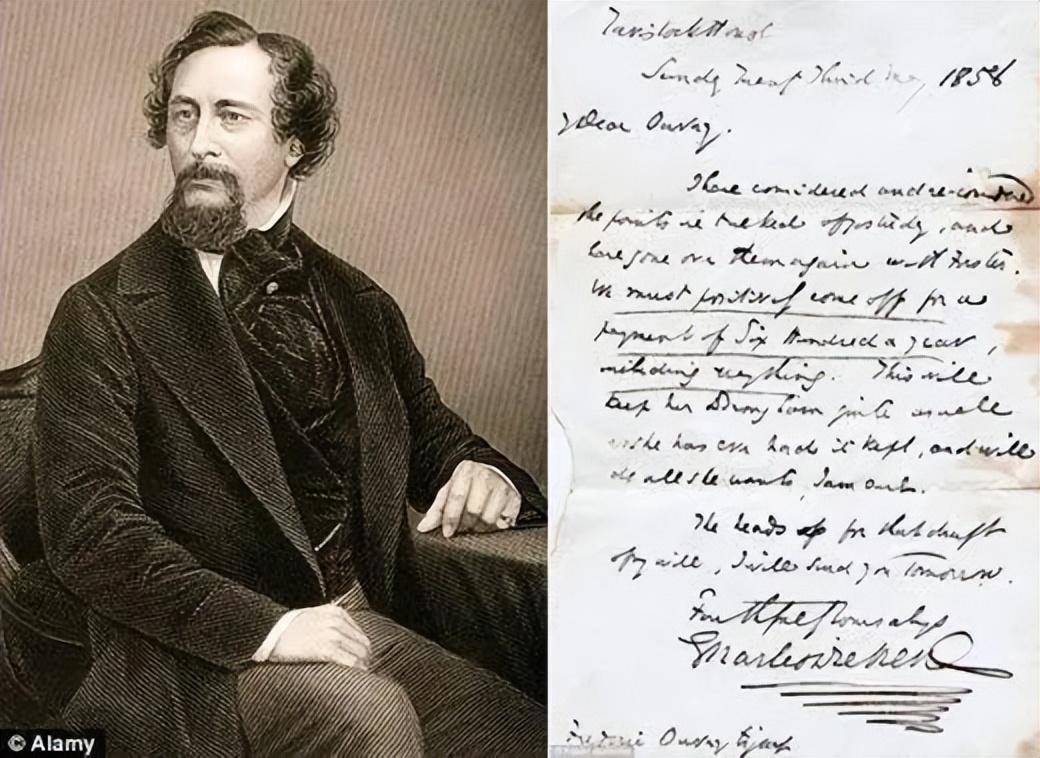 Tavistock House
Sunday Twenty Third May 1858
My Dear Ouvry.
I have considered and re-considered
the points we talked of yesterday, and
have gone over them again with Forster.
We must positively come off for a
payment of Six Hundred a year,
including everything. This will
keep her Brougham quite as well
as she has ever had it kept, and will
do all she wants, I am
The heads for that draft
of my will, I will send you tomorrow.
Faithfully Yours always
Charles Dickens
Frederic Ouvry Esquire
© Alamy